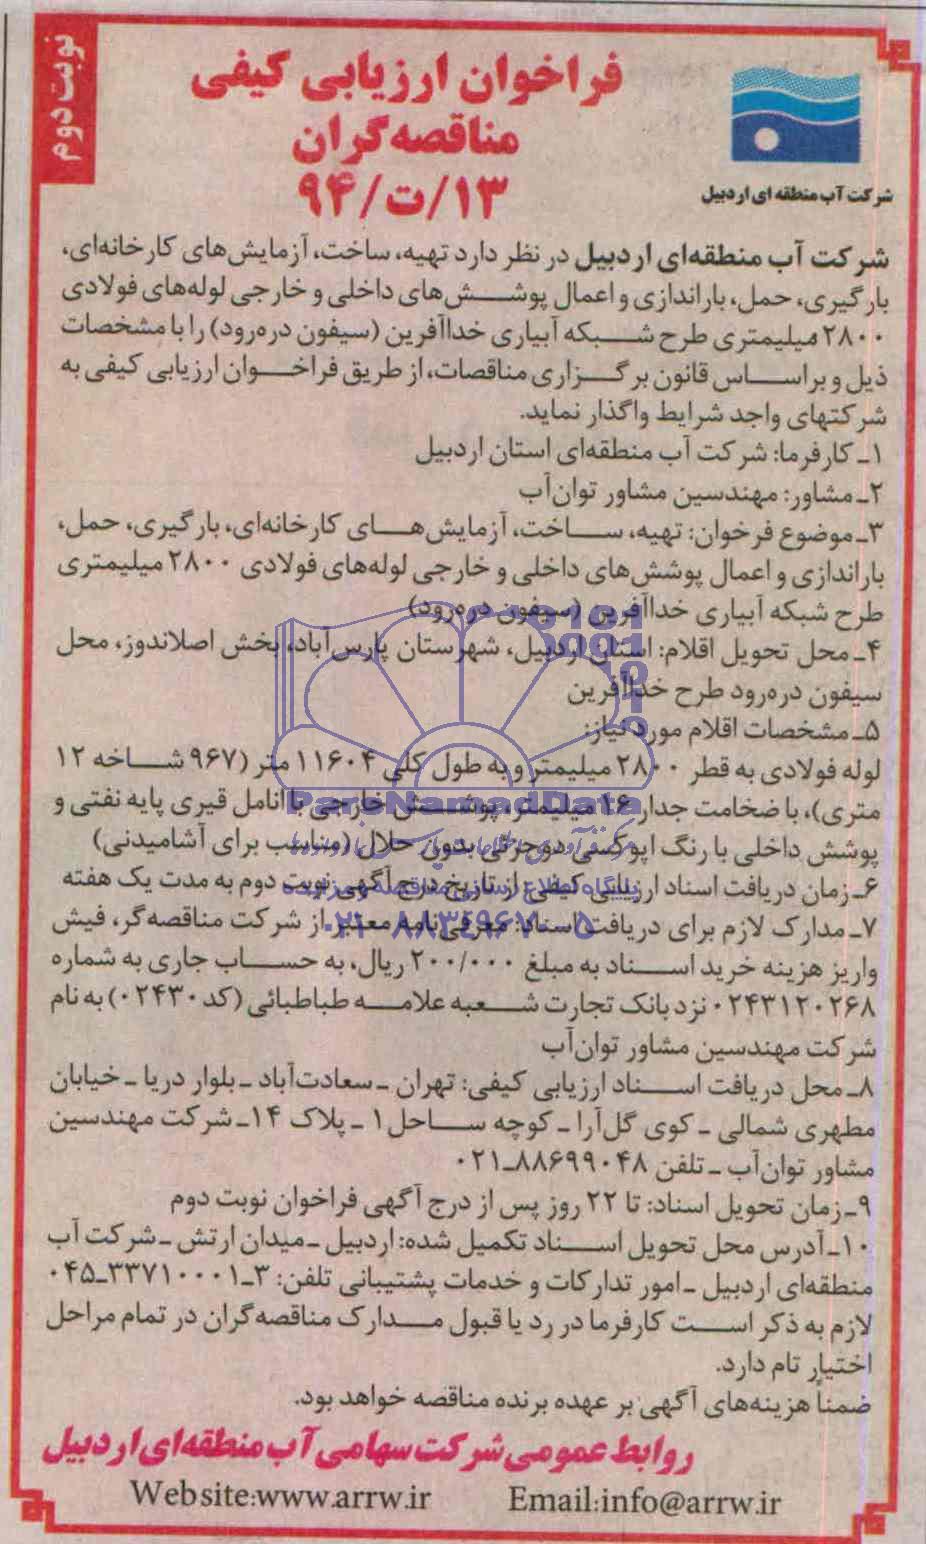 نوبت دوم
فراخوان ارزیابی کیفی
مناقصه‌گران
۱۳/ت/۹۴
شرکت آب منطقه ای اردبیل
شرکت آب منطقه‌ای اردبیل در نظر دارد تهیه، ساخت، آزمایش‌های کارخانه‌ای،
بارگیری، حمل، باراندازی و اعمال پوشش‌های داخلی و خارجی لوله‌های فولادی
۲۸۰۰ میلیمتری طرح شبکه آبیاری خداآفرین (سیفون دره‌رود) را با مشخصات
ذیل و براساس قانون برگزاری مناقصات، از طریق فراخوان ارزیابی کیفی به
شرکتهای واجد شرایط واگذار نماید.
۱ـ کارفرما: شرکت آب منطقه‌ای استان اردبیل
۲ـ مشاور: مهندسین مشاور توان‌آب
۳ـ موضوع فرخوان: تهیه، ساخت، آزمایش‌های کارخانه‌ای، بارگیری، حمل،
باراندازی و اعمال پوشش‌های داخلی و خارجی لوله‌های فولادی ۲۸۰۰ میلیمتری
طرح شبکه آبیاری خداآفرین (سیفون دره‌رود)
۴ـ محل تحویل اقلام: استان اردبیل، شهرستان پارس‌آباد، بخش اصلاندوز، محل
سیفون دره‌رود طرح خداآفرین
۵ـ مشخصات اقلام مورد نیاز:
لوله فولادی به قطر ۲۸۰۰ میلیمتر و به طول کلی ۱۱۶۰۴ متر (۹۶۷ شاخه ۱۲
متری)، با ضخامت جدار ۱۶ میلیمتر، پوشش خارجی با انامل قیری پایه نفتی و
پوشش داخلی با رنگ اپوکسی دوجزئی بدون حلال (مناسب برای آشامیدنی)
ParsNamadData
۶ـ زمان دریافت اسناد ارزیابی کیفی: از تاریخ درج آگهی نوبت دوم به مدت یک هفته
پایگاه اطلاع رسانی مناقصه و مزایده
۷ـ مدارک لازم برای دریافت اسناد: معرفی‌نامه معتبر از شرکت مناقصه‌گر، فیش
۰۲۱-۸۸۳۴۹۶۷۰-۵
واریز هزینه خرید اسناد به مبلغ ۲۰۰/۰۰۰ ریال، به حساب جاری به شماره
۰۲۴۳۱۲۰۲۶۸ نزد بانک تجارت شعبه علامه طباطبائی (کد ۰۲۴۳۰) به نام
شرکت مهندسین مشاور توان‌آب
۸ـ محل دریافت اسناد ارزیابی کیفی: تهران ـ سعادت‌آباد ـ بلوار دریا ـ خیابان
مطهری شمالی ـ کوی گل‌آرا ـ کوچه ساحل۱ ـ پلاک ۱۴ـ شرکت مهندسین
مشاور توان‌آب ـ تلفن ۸۸۶۹۹۰۴۸ـ۰۲۱
۹ـ زمان تحویل اسناد: تا ۲۲ روز پس از درج آگهی فراخوان نوبت دوم
۱۰ـ آدرس محل تحویل اسناد تکمیل شده: اردبیل ـ میدان ارتش ـ شرکت آب
منطقه‌ای اردبیل ـ امور تدارکات و خدمات پشتیبانی تلفن: ۳ـ۳۳۷۱۰۰۰۱ـ۰۴۵
لازم به ذکر است کارفرما در رد یا قبول مدارک مناقصه‌گران در تمام مراحل
اختیار تام دارد.
ضمناً هزینه‌های آگهی بر عهده برنده مناقصه خواهد بود.
روابط عمومی شرکت سهامی آب منطقه‌ای اردبیل
Website:www.arrw.ir Email:info@arrw.ir